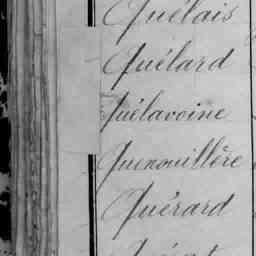 Quélais
Quélard
Quélavoine
Quenouillère
Quérard